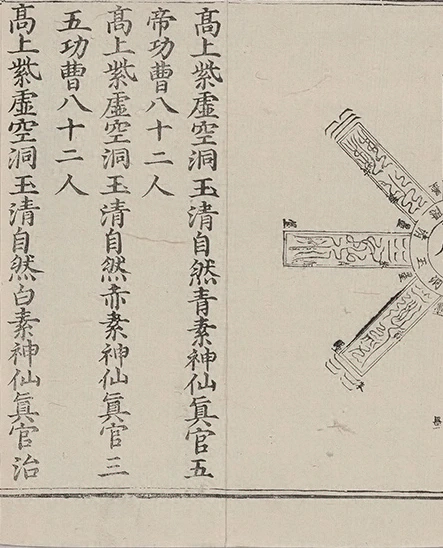 高上紫虛空洞玉清自然青素神仙眞官五
帝功曹八十二人
高上紫虛空洞玉清自然赤素神仙眞官三
五功曹八十二人
高上紫虛空洞玉清自然白素神仙眞官治